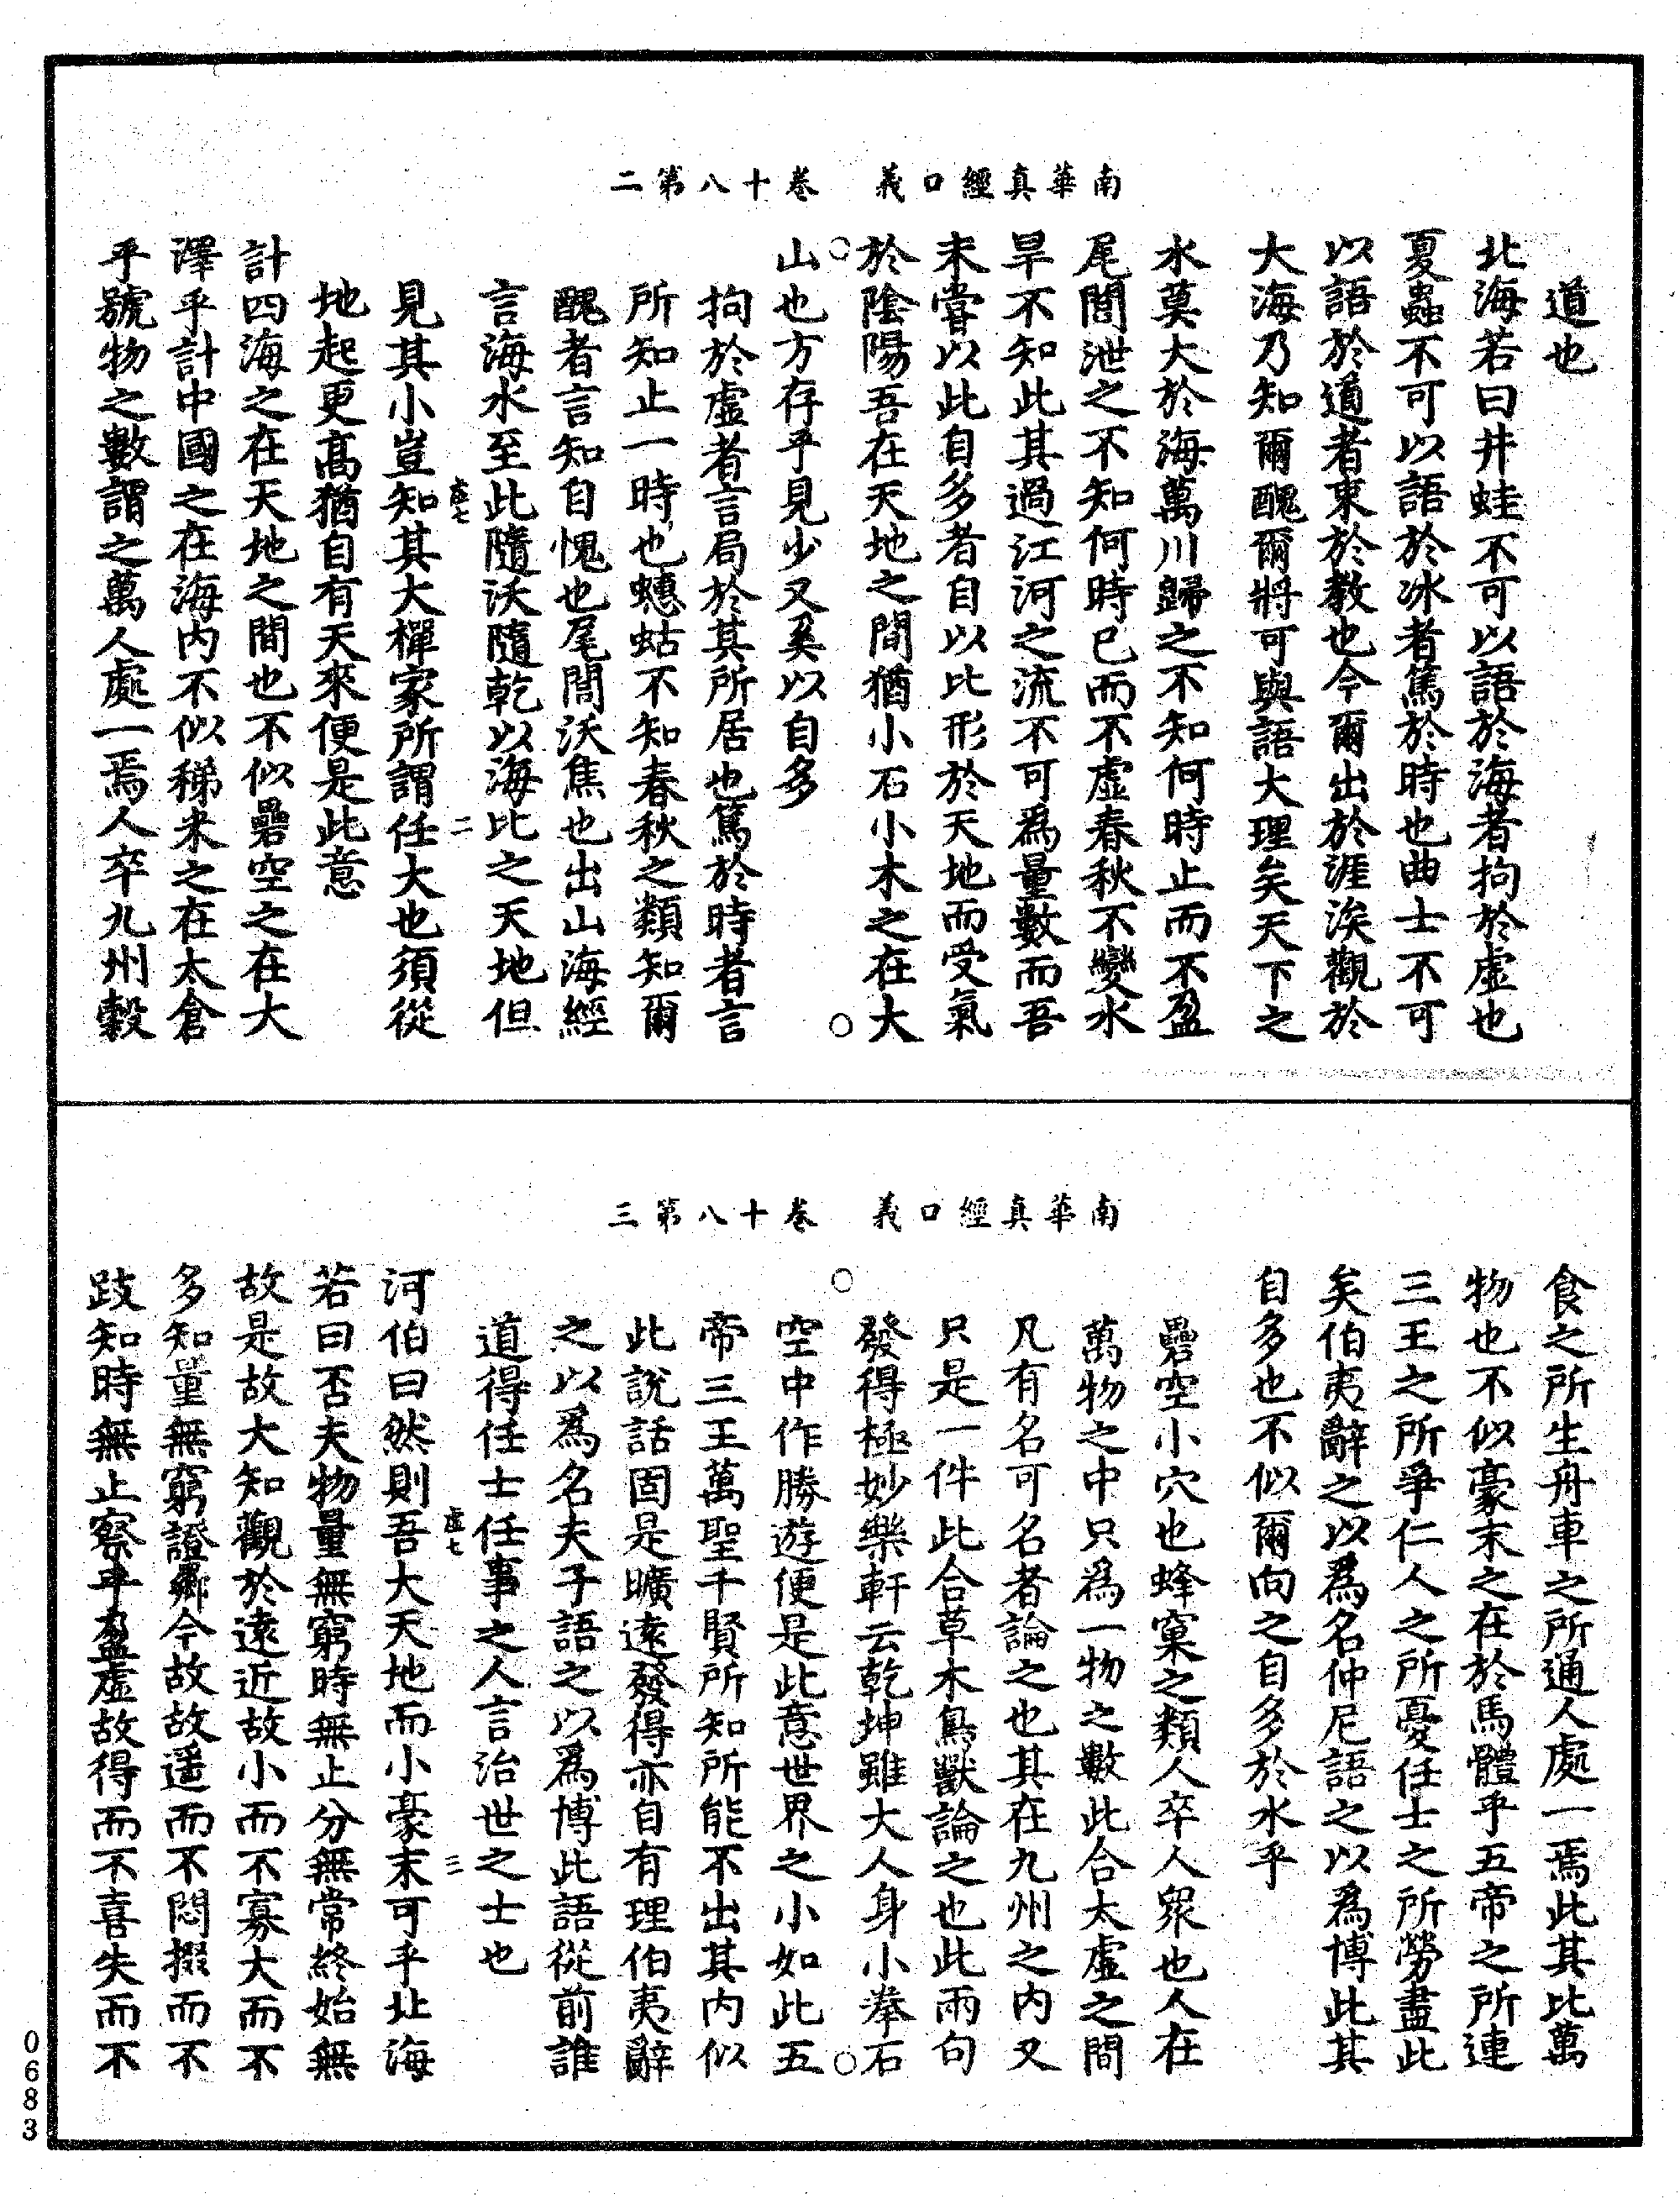 南華真經口義　卷十八第二
道也
北海若曰井蛙不可以語於海者拘於虛也
夏蟲不可以語於冰者篤於時也曲士不可
以語於道者束於教也今爾出於涯涘觀於
大海乃知爾醜爾將可與語大理矣天下之
水莫大於海萬川歸之不知何時止而不盈
尾閭泄之不知何時已而不虛春秋不變水
旱不知此其過江河之流不可爲量數而吾
未嘗以此自多者自以比形於天地而受氣
於陰陽吾在天地之間猶小石小木之在大
山也方存乎見少又奚以自多
拘於虛者言局於其所居也篤於時者言
所知止一時也蟪蛄不知春秋之類知爾
醜者言知自愧也尾閭沃焦也出山海經
言海水至此隨沃隨乾以海比之天地但
虛七　二
見其小豈知其大禪家所謂任大也須從
地起更高猶自有天來便是此意
計四海之在天地之間也不似礨空之在大
澤乎計中國之在海内不似稊米之在太倉
乎號物之數謂之萬人處一焉人卒九州穀
南華真經口義　卷十八第三
食之所生舟車之所通人處一焉此其比萬
物也不似豪末之在於馬體乎五帝之所連
三王之所爭仁人之所憂任士之所勞盡此
矣伯夷辭之以爲名仲尼語之以爲博此其
自多也不似爾向之自多於水乎
礨空小穴也蜂窠之類人卒人眾也人在
萬物之中只爲一物之數此合太虛之間
凡有名可名者論之也其在九州之内又
只是一件此合草木鳥獸論之也此兩句
發得極妙樂軒云乾坤雖大人身小拳石
空中作勝遊便是此意世界之小如此五
帝三王萬聖千賢所知所能不出其内似
此說話固是曠遠發得亦自有理伯夷辭
之以爲名夫子語之以爲博此語從前誰
道得任士任事之人言治世之士也
虛七　三
河伯曰然則吾大天地而小豪末可乎北海
若曰否夫物量無窮時無止分無常終始無
故是故大知觀於遠近故小而不寡大而不
多知量無窮證曏今故故遥而不悶掇而不
跂知時無止察乎盈虛故得而不喜失而不
0683